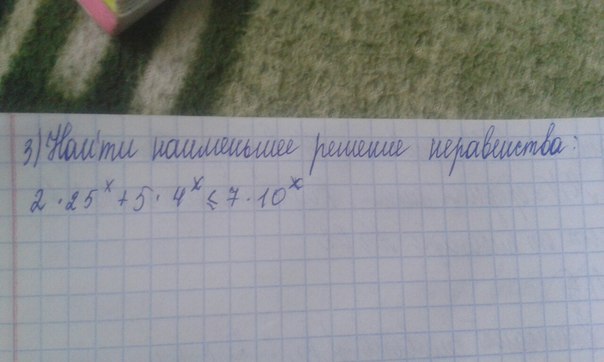 3) Найти наименьшее решение неравенства:
2 · 25ˣ + 5 · 4ˣ ⩽ 7 · 10ˣ